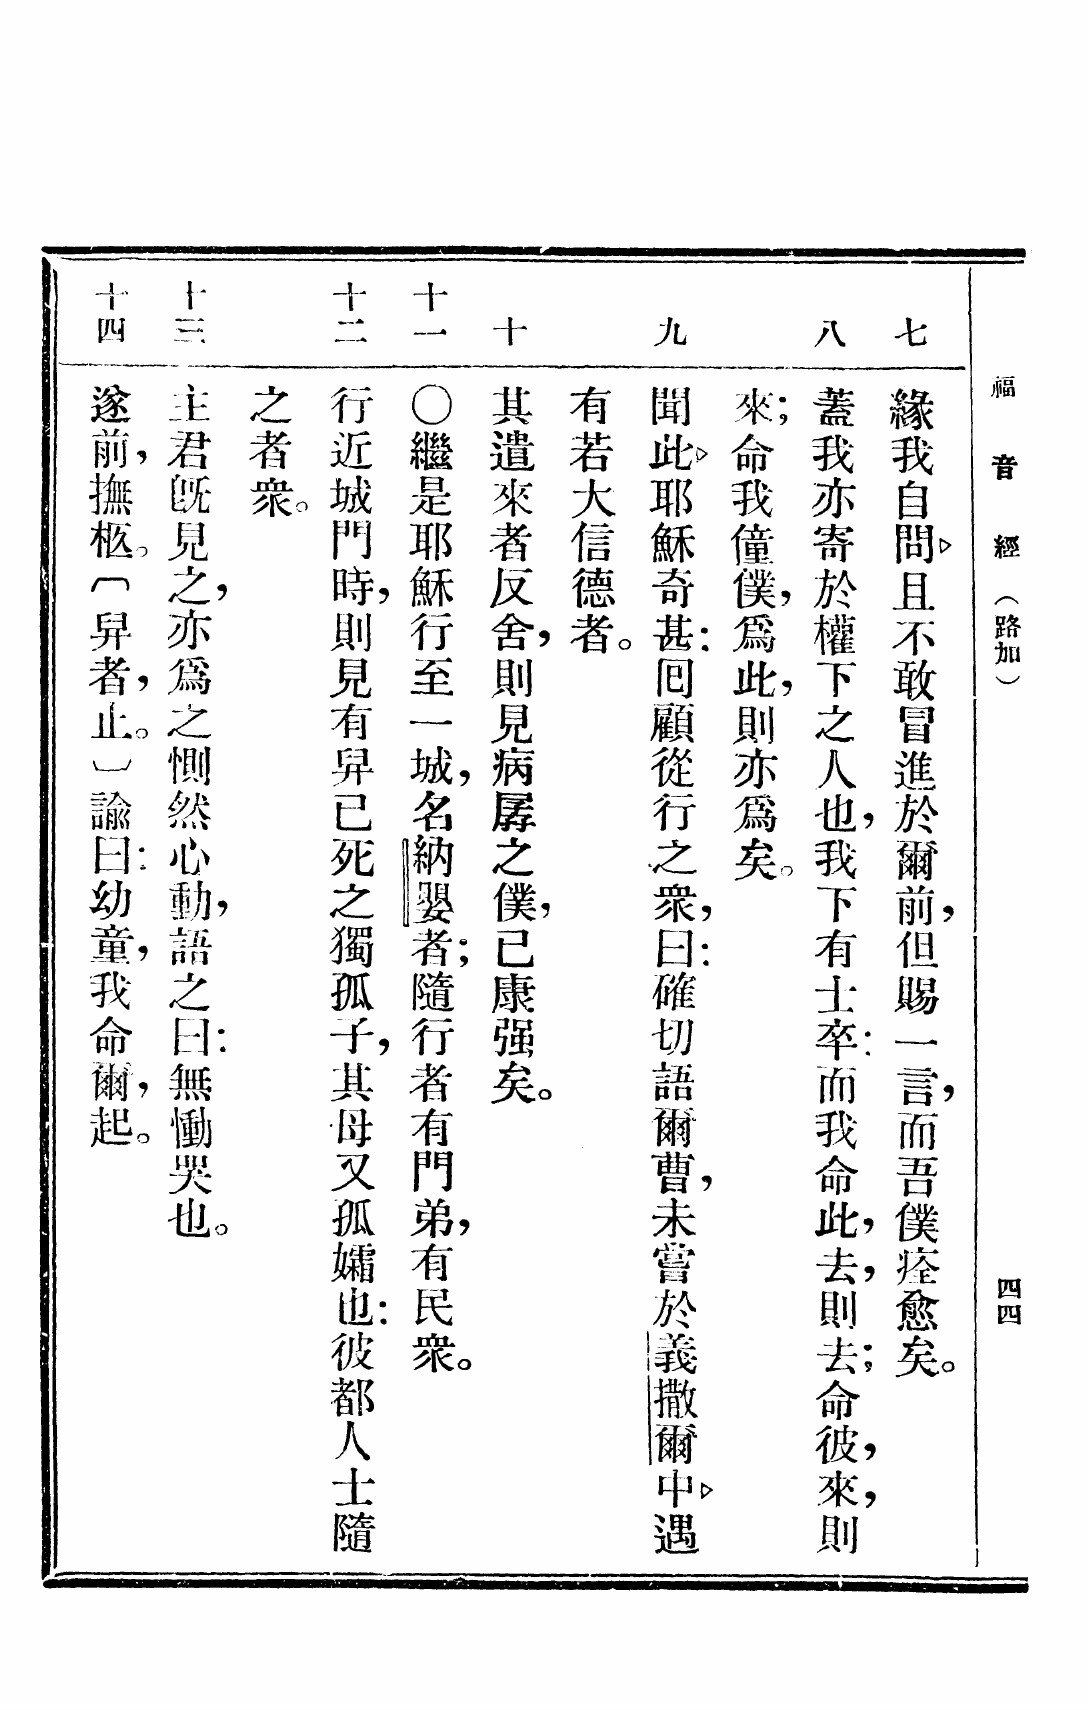 福音經（路加） 四四
七 緣我自問▹且不敢冒進於爾前，但賜一言，而吾僕痊愈矣。
八 蓋我亦寄於權下之人也，我下有士卒：而我命此，去，則去；命彼，來，則
來；命我僮僕，爲此，則亦爲矣。
九 聞此▹耶穌奇甚：囘顧從行之衆，曰：確切語爾曹，未嘗於義撒爾中▹遇
有若大信德者。
十 其遣來者反舍，則見病孱之僕，已康强矣。
十一 〇繼是耶穌行至一城，名納嬰者；隨行者有門弟，有民衆。
十二 行近城門時，則見有舁已死之獨孤子，其母又孤孀也：彼都人士隨
之者衆。
十三 主君旣見之，亦爲之惻然心動，語之曰：無慟哭也。
十四 遂前，撫柩。〔舁者，止。〕諭曰：幼童，我命爾，起。